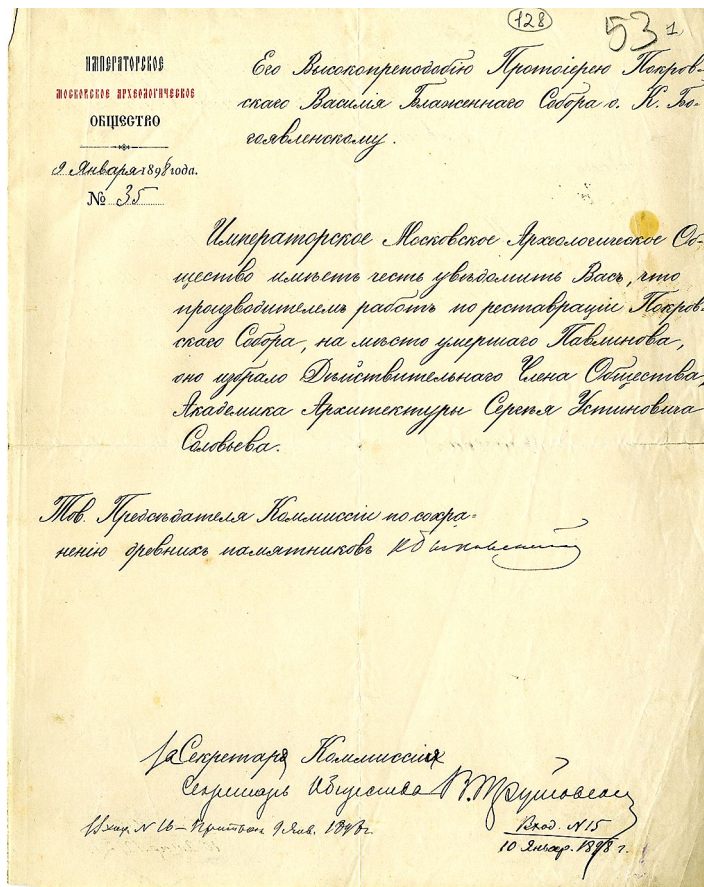 128
53 1
ИМПЕРАТОРСКОЕ
МОСКОВСКОЕ АРХЕОЛОГИЧЕСКОЕ
ОБЩЕСТВО
9 Января 1898 года.
№ 35
Его Высокопреподобію Протоіерею Покров-
скаго Василія Блаженнаго Собора о. К. Бо-
гоявленскому.
Императорское Московское Археологическое Об-
щество имѣетъ честь увѣдомить Васъ, что
производителемъ работъ по реставраціи Покров-
скаго Собора, на мѣсто умершаго Павлинова,
оно избрало Дѣйствительнаго Члена Общества,
Академика Архитектуры Сергѣя Устиновича
Соловьева.
Тов. Предсѣдателя Коммиссіи по сохра-
ненію древнихъ памятниковъ К Быковскій
За Секретаря Коммиссіи
Секретарь Общества В. Трутовскій
№ 16 — 9 Янв. 1898г.
Вход. № 15
10 Январ. 1898 г.